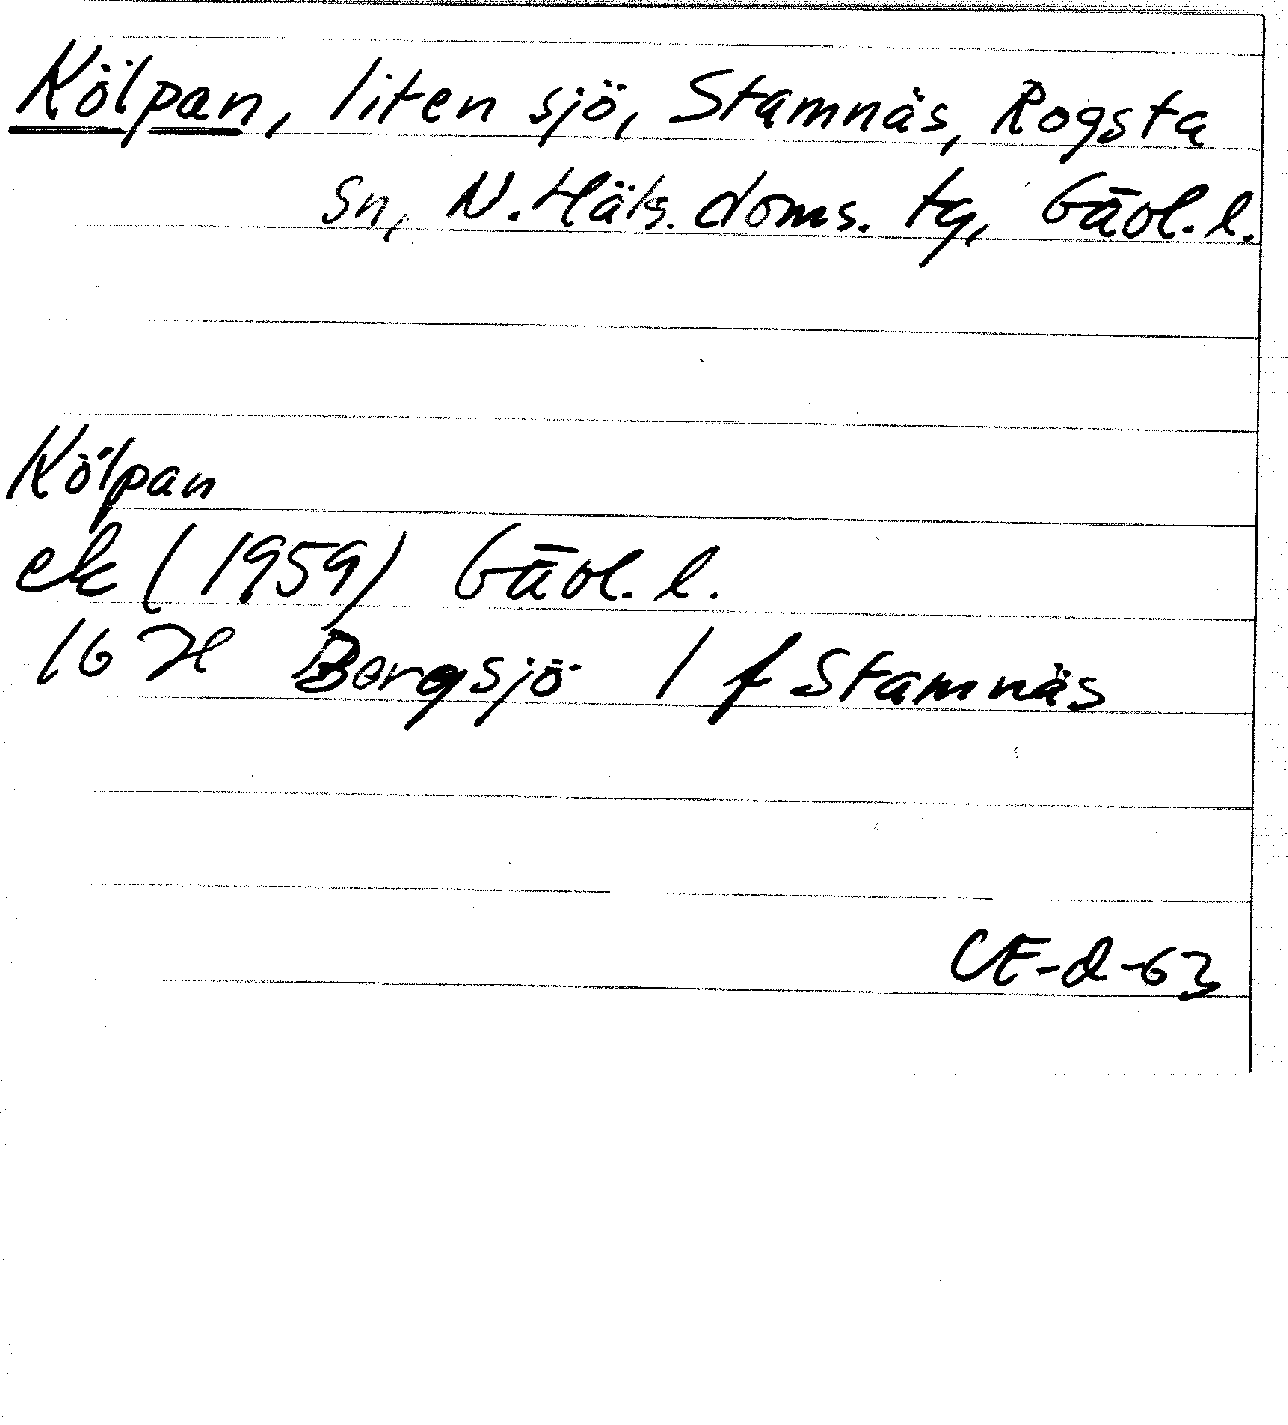 Kölpan, liten sjö, Stamnäs, Rogsta
sn, N. Häls. doms. tg, Gävl. l.
Kölpan
ek (1959) Gävl. l.
16 H Bergsjö 1 f Stamnäs
CE-d-63